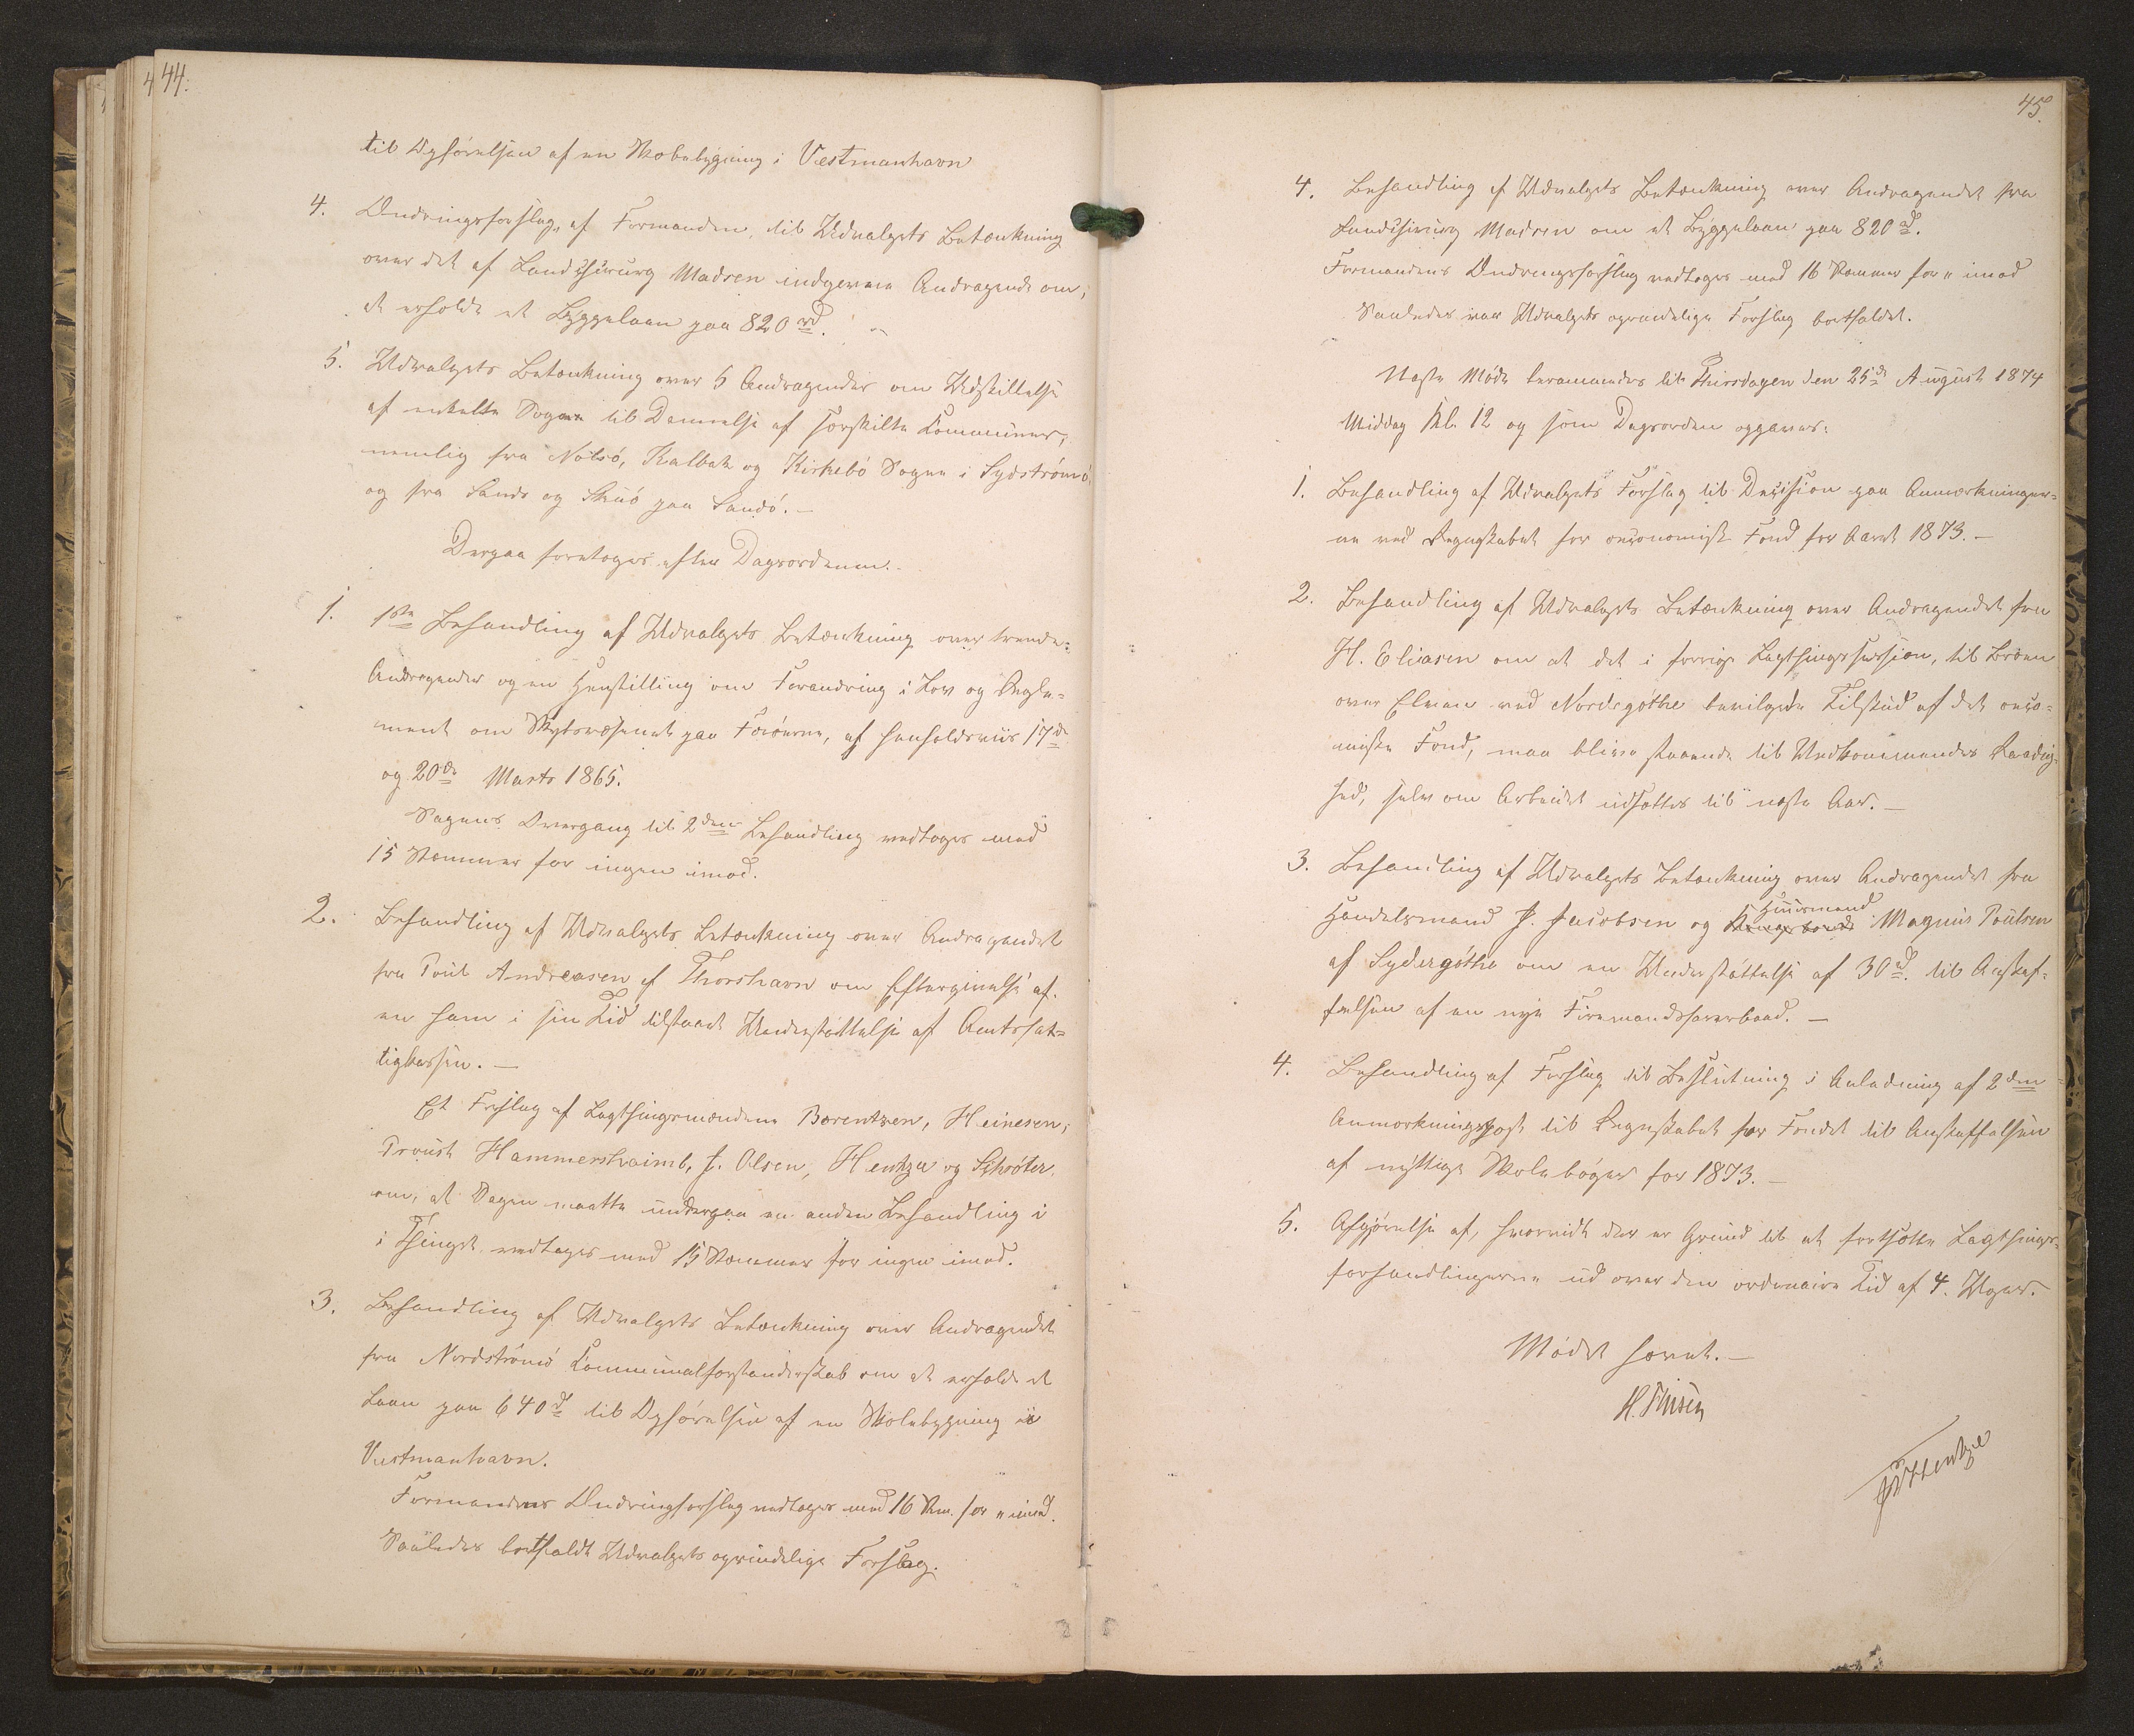 44.
til Opførelsen af en Skolebygning i Vestmanhavn
4. Ændringsforslag af Formanden til Udvalgets Betænkning
over det af Landchirurg Madsen indgivne Andragende om,
at erholde et Byggelaan paa 820 rd.
5. Udvalgets Betænkning over 5 Andragender om Udskillelse
af enkelte Sogne til Dannelse af særskilte Kommuner,
nemlig fra Nolsø, Kalbak og Kirkebø Sogne i Sydstrømø,
og fra Sands og Skuø paa Sandø. —
Derpaa foretoges efter Dagsordenen.
1. 1ste Behandling af Udvalgets Betænkning over trende
Andragender og en Henstilling om Forandring i Lov og Regle-
ment om Skydsvæsenet paa Færøerne, af henholdsviis 17de
og 20de Marts 1865.
Sagens Overgang til 2den Behandling vedtoges med
15 Stemmer for ingen imod.
2. Behandling af Udvalgets Betænkning over Andragendet
fra Poul Andreasen af Thorshavn om Eftergivelse af
en ham i sin Tid tilstaaet Understøttelse af Amtsfat-
tigkassen. —
Et Forslag af Lagthingsmændene Bærentsen, Heinesen,
Provst Hammershaimb, J. Olsen, Hentze og Schrøter,
om, at Sagen maatte undergaa en anden Behandling i
i Thinget vedtoges med 15 Stemmer for ingen imod.
3. Behandling af Udvalgets Betænkning over Andragendet
fra Nordstrømø Communalforstanderskab om at erholde et
Laan paa 640 rd til Opførelsen af en Skolebygning i
Vestmanhavn.
Formandens Ændringsforslag vedtoges med 16 Stm. for " imod.
Saaledes bortfaldt Udvalgets oprindelige Forslag.
45.
4. Behandling af Udvalgets Betænkning over Andragendet fra
Landchirurg Madsen om et Byggelaan paa 820 rd.
Formandens Ændringsforslag vedtoges med 16 Stemmer for " imod
Saaledes var Udvalgets oprindelige Forslag bortfaldet.
Næste Møde berammedes til Thirsdagen den 25de August 1874
Middag Kl. 12 og som Dagsorden opgaves:
1. Behandling af Udvalgets Forslag til Decision paa Anmærkninger-
ne ved Regnskabet for oeconomisk Fond for Aaret 1873. —
2. Behandling af Udvalgets Betænkning over Andragendet fra
H. Eliasen om at det i forrige Lagthingssession, til Broen
over Elven ved Nordregøthe bevilgede Tilskud af det oeco-
miske Fond, maa blive staaende til Vedkommendes Raadig-
hed, selv om Arbeidet udsættes til næste Aar. —
3. Behandling af Udvalgets Betænkning over Andragendet fra
Handelsmand J. Jacobsen og Huusmand Magnus Poulsen
af Sydregøthe om en Understøttelse af 30 rd. til Anskaf-
felsen af en nye Firemandsfarerbaad. —
4. Behandling af Forslag til Beslutning i Anledning af 2den
Anmærkningspost til Regnskabet for Fondet til Anskaffelsen
af nyttige Skolebøger for 1873. —
5. Afgjørelse af, hvorvidt der er Grund til at fortsætte Lagthings-
forhandlingerne ud over den ordinaire Tid af 4 Uger.
Mødet hævet. —
H. Finsen
Hentze